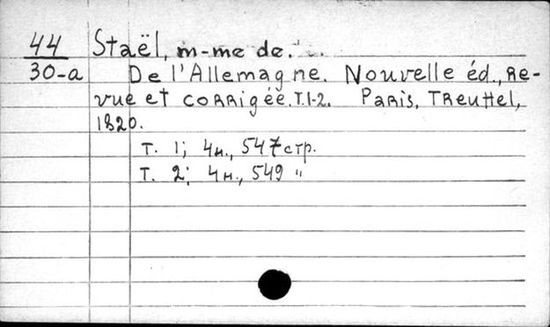 44 Staël, m-me de.
30-a De l'Allemagne. Nouvelle éd., re-
vue et corrigée. T.1-2. Paris, Treuttel,
1820.
Т. 1; 4н., 547 стр.
Т. 2; 4н., 549 "